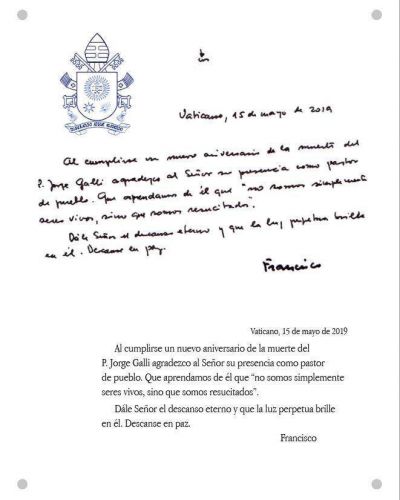 Vaticano, 15 de mayo de 2019
Al cumplirse un nuevo aniversario de la muerte del
P. Jorge Galli agradezco al Señor su presencia como pastor
de pueblo. Que aprendamos de él que "no somos simplemente
seres vivos, sino que somos resucitados".
Dále Señor el descanso eterno y que la luz perpetua brille
en él. Descanse en paz.
Francisco
Vaticano, 15 de mayo de 2019
Al cumplirse un nuevo aniversario de la muerte del
P. Jorge Galli agradezco al Señor su presencia como pastor
de pueblo. Que aprendamos de él que “no somos simplemente
seres vivos, sino que somos resucitados”.
Dále Señor el descanso eterno y que la luz perpetua brille
en él. Descanse en paz.
Francisco